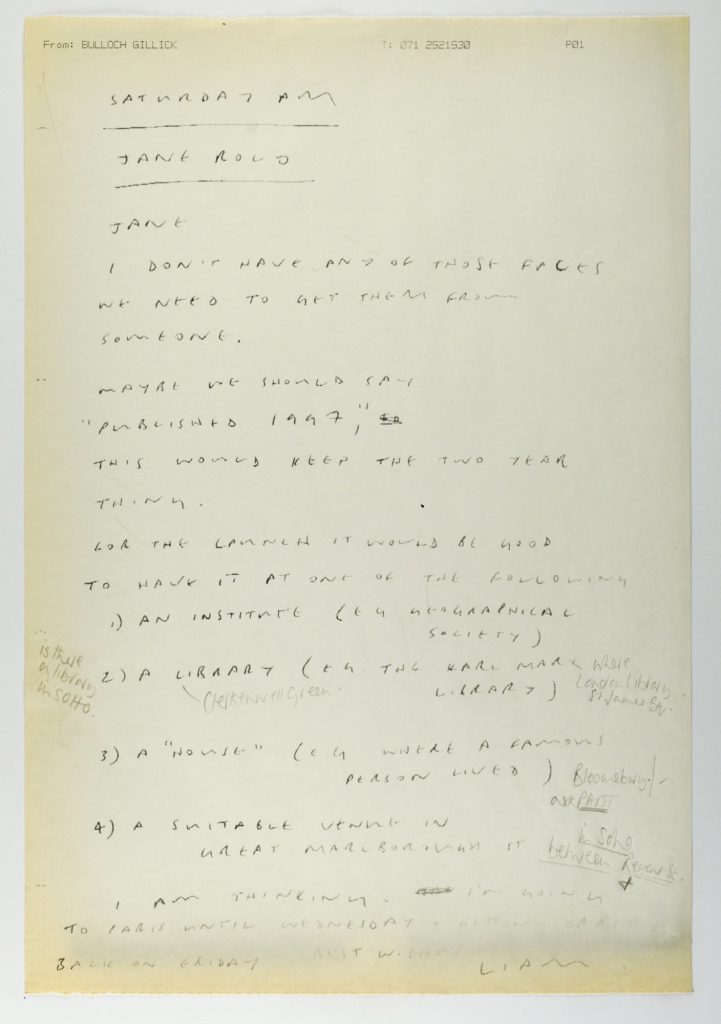 From: BULLOCH GILLICK T: 071 2521530 P01
SATURDAY AM
JANE ROLO
JANE
I DON'T HAVE ANY OF THOSE FACES
WE NEED TO GET THEM FROM
SOMEONE.
MAYBE WE SHOULD SAY
"PUBLISHED 1997,"
THIS WOULD KEEP THE TWO YEAR
THING.
FOR THE LAUNCH IT WOULD BE GOOD
TO HAVE IT AT ONE OF THE FOLLOWING
1) AN INSTITUTE (EG GEOGRAPHICAL
SOCIETY)
is there
a library
in SOHO.
2) A LIBRARY (EG. THE KARL MARX
LIBRARY)
where
London Library
St James Sq.
Clerkenwell Green
3) A "HOUSE" (EG WHERE A FAMOUS
PERSON LIVED)
Bloomsbury
ask
4) A SUITABLE VENUE IN
GREAT MARLBOROUGH ST
in Soho
between Regent St.
I AM THINKING. I'M GOING
TO PARIS UNTIL WEDNESDAY +
BACK ON FRIDAY. BEST WISHES
LIAM